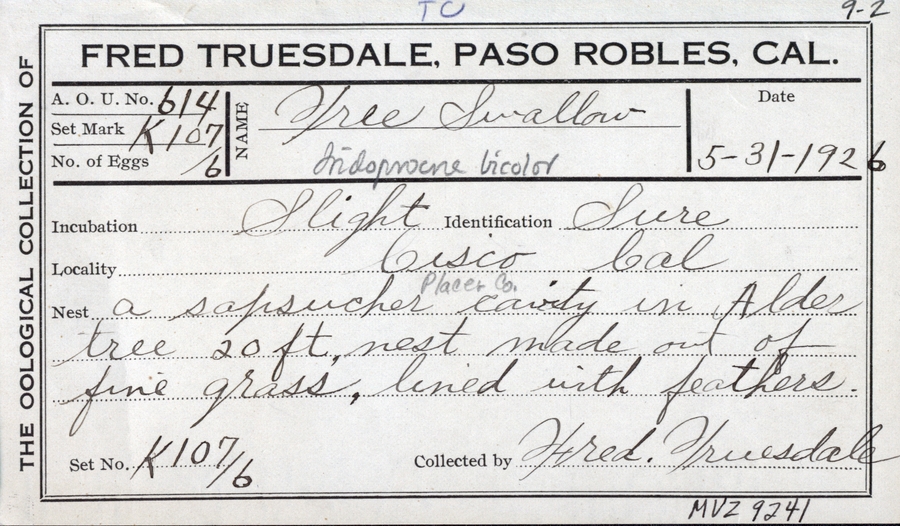 TO
9-2
THE OOLOGICAL COLLECTION OF
FRED TRUESDALE, PASO ROBLES, CAL.
A. O. U. No. 614
Set Mark K107
No. of Eggs /6
NAME Tree Swallow
Iridoprocne bicolor
Date
5-31-1926
Incubation Slight Identification Sure
Locality Cisco Cal
Placer Co.
Nest a sapsucher cavity in Alder
tree 20 ft, nest made out of
fine grass, lined with feathers.
Set No. K107/6 Collected by Fred. Truesdale
MVZ 9241